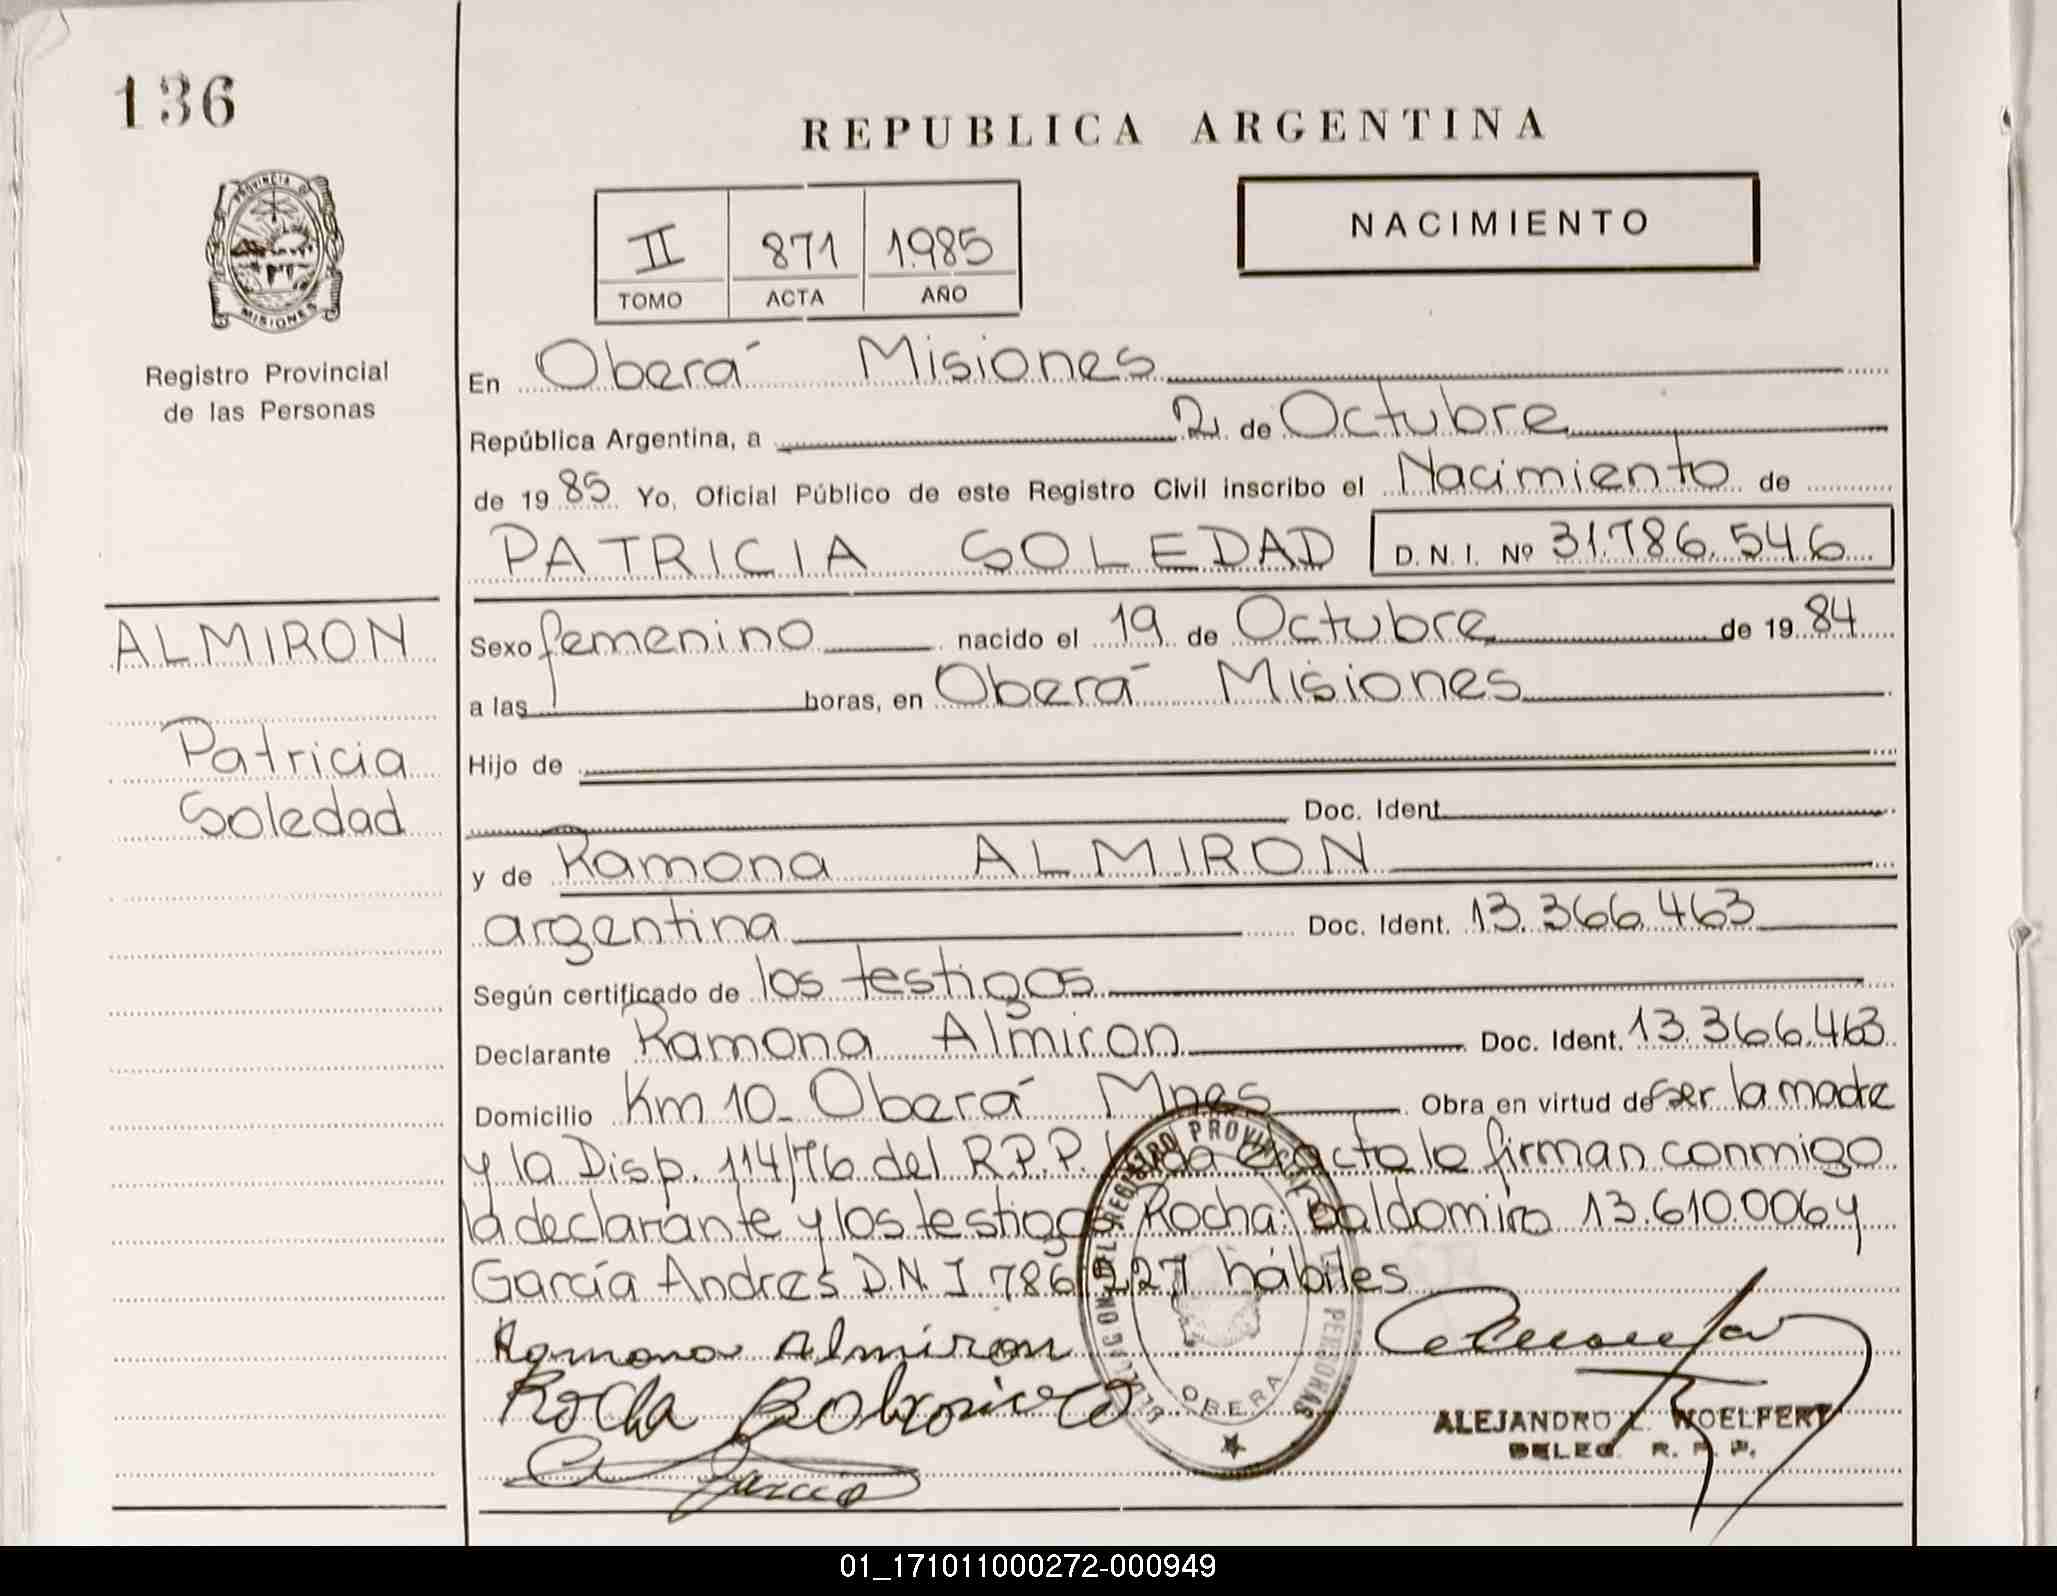 136
REPUBLICA ARGENTINA
PROVINCIA DE
MISIONES
Registro Provincial
de las Personas
II 871 1985
TOMO ACTA AÑO
NACIMIENTO
En Oberá Misiones
República Argentina, a 2 de Octubre
de 1985 Yo, Oficial Público de este Registro Civil inscribo el Nacimiento de
PATRICIA SOLEDAD D.N.I. Nº 31.786.546
ALMIRON
Patricia
Soledad
Sexo femenino nacido el 19 de Octubre de 1984
a las horas, en Oberá Misiones
Hijo de
Doc. Ident.
y de Ramona ALMIRON
argentina Doc. Ident. 13.366.463
Según certificado de los testigos
Declarante Ramona Almiron Doc. Ident. 13.366.463
Domicilio Km 10_ Oberá Mnes Obra en virtud de ser la madre
y la Disp. 114/76 del R.P.P. acta la firman conmigo
la declarante y los testigos Rocha Baldomiro 13.610.006 y
García Andres D.N.I 786 227 hábiles
Ramona Almiron
Rocha
Garcia
REGISTRO PROVINCIAL DE LAS PERSONAS
OBERA
ALEJANDRO L. WOELFERT
DELEG. R. P. P.
01_171011000272-000949